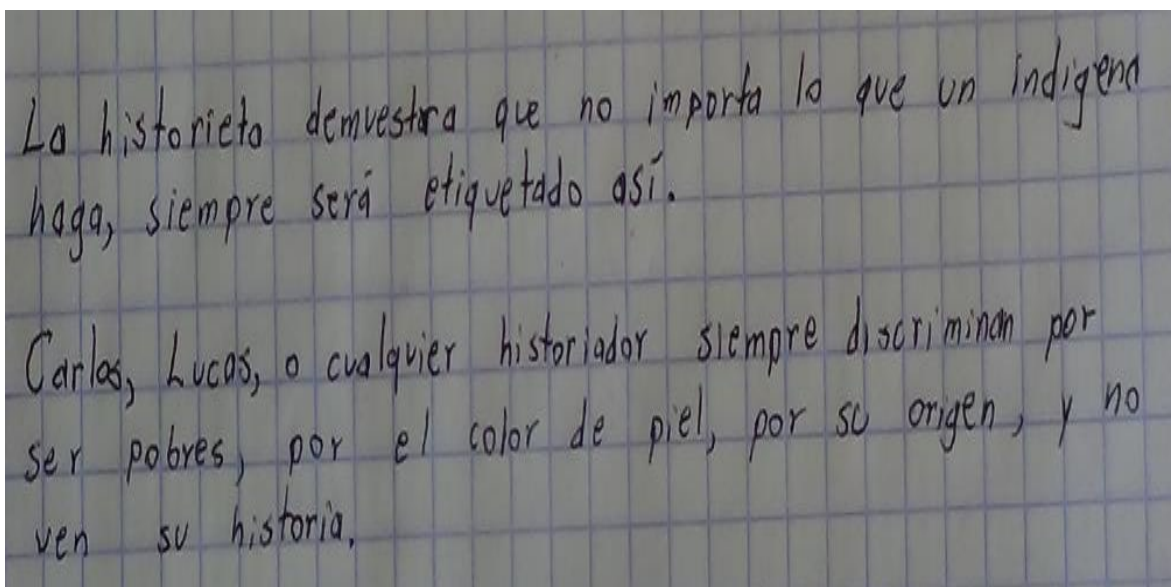 La historieta demuestra que no importa lo que un indigena
haga, siempre será etiquetado así.
Carlos, Lucas, o cualquier historiador siempre discriminan por
ser pobres, por el color de piel, por su origen, y no
ven su historia.